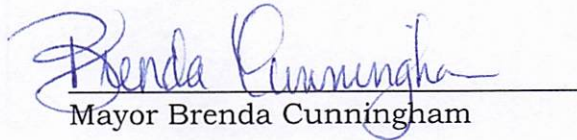 Brenda Cunningham
Mayor Brenda Cunningham